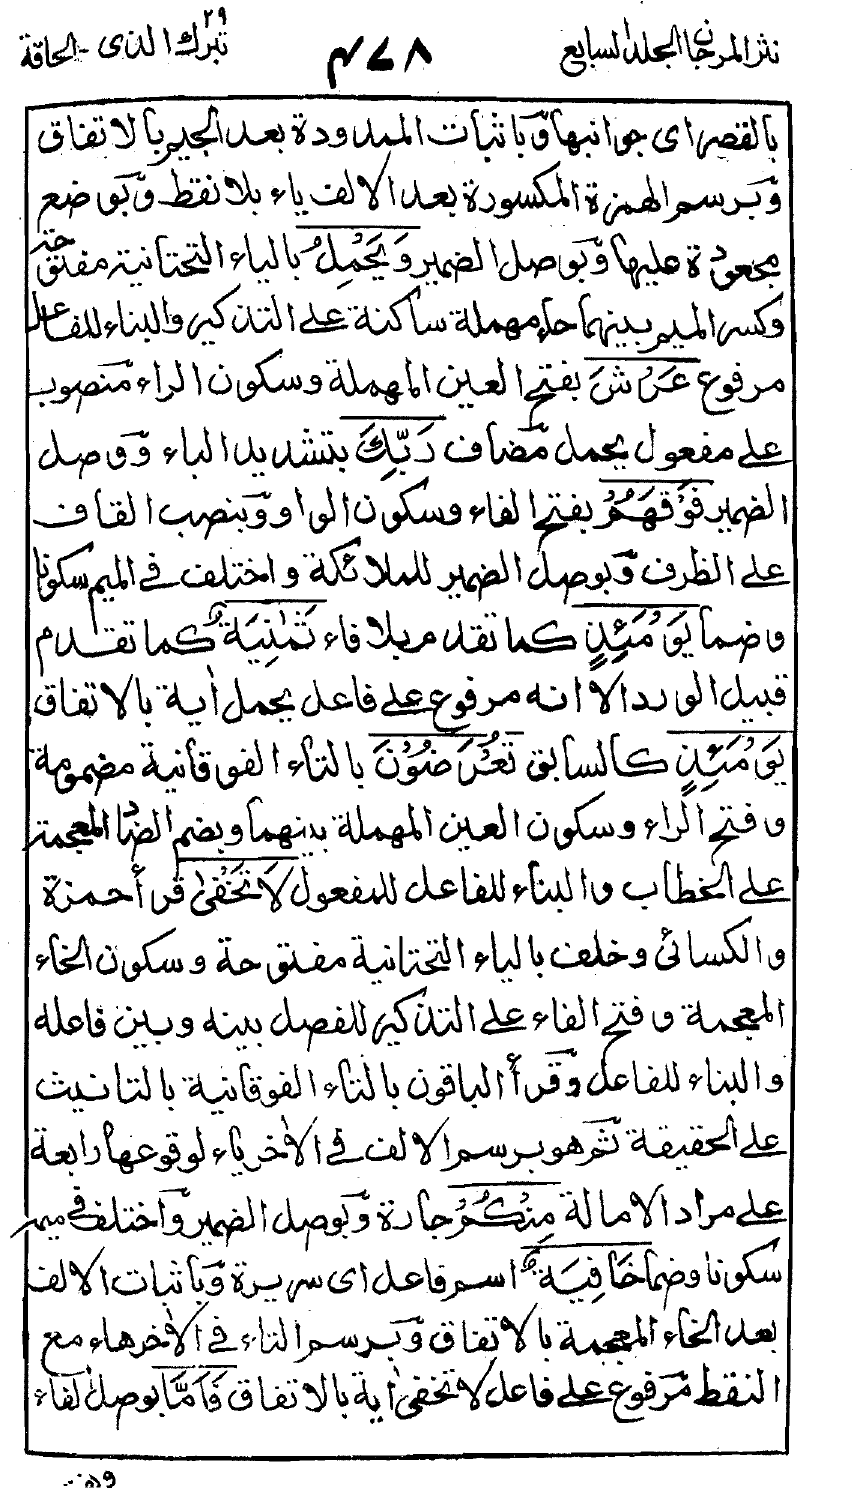 نثر المرجان المجلد السابع
۴۷۸
تبرك الذى ۲۹ - الحاقة
بالقصر اى جوانبها وّباثبات الممدودة بعد الجيم بالاتفاق
وّبرسم الهمزة المكسورة بعد الالف ياء بلا نقط وّبوضع
مجعودة عليها وّبوصل الضمير وَيَحْمِلُ بالياء التحتانية مفتوحة
وكسر الميم بينهما حاء مهملة ساكنة على التذكير والبناء للفاعل
مرفوع عَرْشَ بفتح العين المهملة وسكون الراء منصوب
على مفعول يحمل مّضاف رَبِّكَ بتشديد الباء وّوصل
الضمير فَوْقَهُمْ بفتح الفاء وسكون الواو وّبنصب القاف
على الظرف وّبوصل الضمير للملائكة واختلف فى الميم سكونا
وضما يَوْمَئِذٍ كما تقدم بلا فاء ثَمٰنِيَةٌ ط كما تقدم
قبيل الورد الا انه مرفوع على فاعل يحمل اٰية بالاتفاق
يَوْمَئِذٍ كالسابق تُعْرَضُوْنَ بالتاء الفوقانية مضمومة
وفتح الراء وسكون العين المهملة بينهما وبضم الضاد المعجمة
على الخطاب والبناء للفاعل للمفعول لَا تَخْفٰى قرأ حمزة
والكسائى وخلف بالياء التحتانية مفتوحة وسكون الخاء
المعجمة وفتح الفاء على التذكير للفصل بينه وبين فاعله
والبناء للفاعل وّقرأ الباقون بالتاء الفوقانية بالتانيث
على الحقيقة ثم هو برسم الالف فى الاٰخر ياء لوقوعها رابعة
على مراد الامالة مِنْكُمْ جارة وّبوصل الضمير وّاختلف فى ميمه
سكونا وضما خَافِيَةٌ ط اسم فاعل اى سريرة وّباثبات الالف
بعد الخاء المعجمة بالاتفاق وّبرسم التاء فى الاٰخر هاء مع
النقط مّرفوع على فاعل لا تخفى اٰية بالاتفاق فَاَمَّا بوصل الفاء